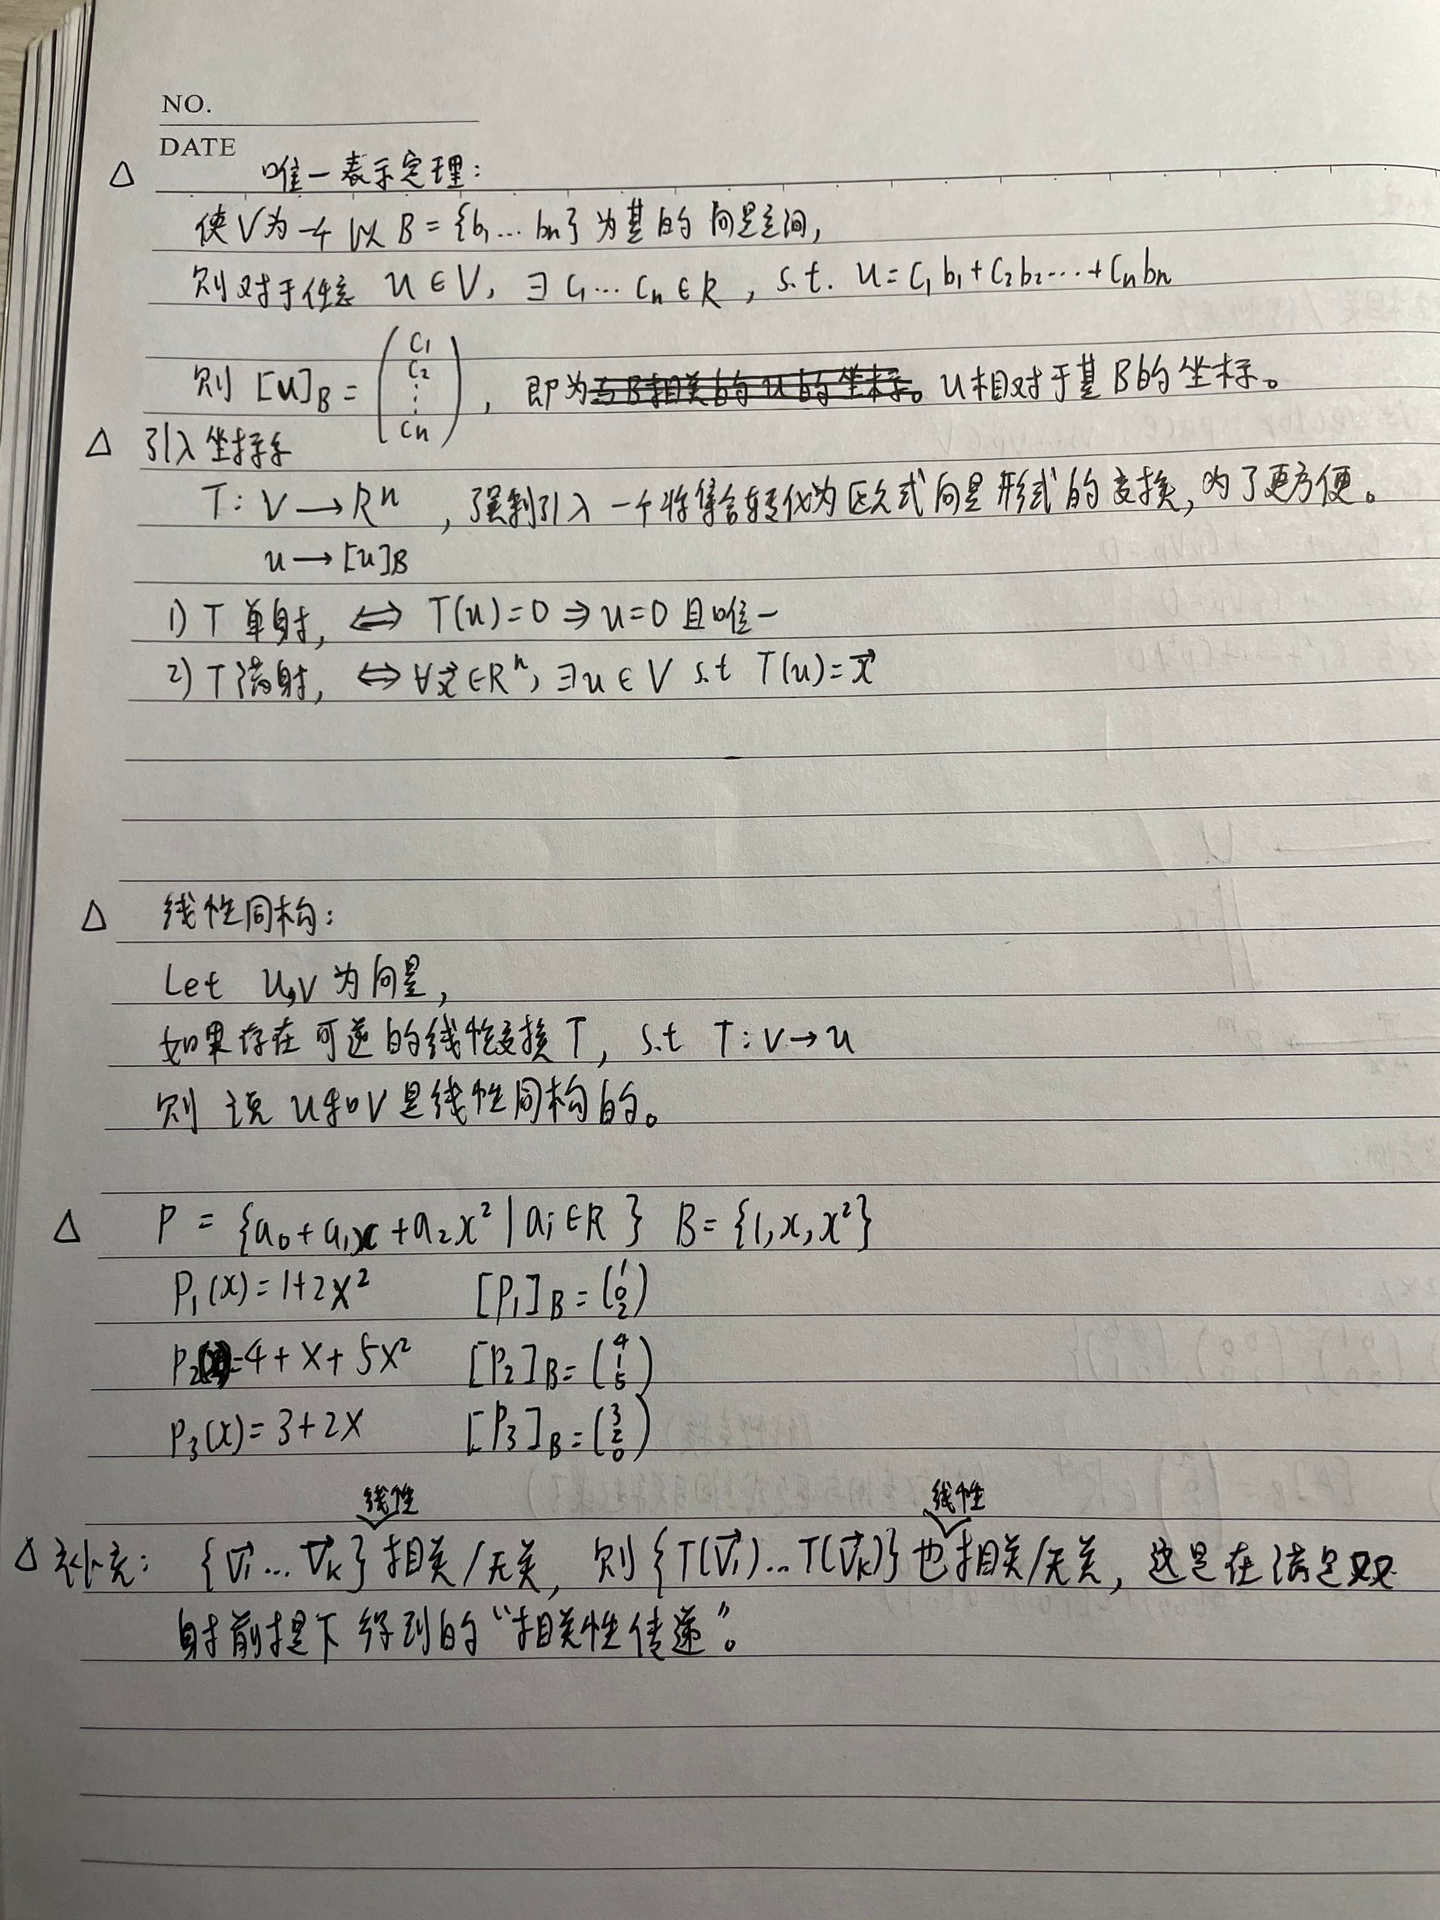 NO.
DATE
△ 唯一表示定理:
使V为一个以B={b₁…bn}为基的向量空间,
则对于任意 u∈V, ∃ C₁…Cn∈R, s.t. u=C₁b₁+C₂b₂…+Cnbn
则 [u]B = (C₁ C₂ ⋮ Cn), 即为与B相关的u的坐标。u相对于基B的坐标。
△ 引入坐标系
T: V→Rⁿ, 强制引入一个将集合转化为欧式向量形式的变换,为了更方便。
u→[u]B
1) T 单射, ⇔ T(u)=0 ⇒ u=0 且唯一
2) T满射, ⇔ ∀x⃗∈Rⁿ, ∃u∈V s.t T(u)=x⃗
△ 线性同构:
Let U,V 为向量,
如果存在可逆的线性变换T, s.t T:V→u
则说 u和V是线性同构的。
△ P = {a₀+a₁x+a₂x² | ai∈R} B={1,x,x²}
P₁(x)=1+2x² [P₁]B=(1 0 2)
P₂(x)=4+x+5x² [P₂]B=(4 1 5)
P₃(x)=3+2x [P₃]B=(3 2 0)
线性 线性
△ 补充: {v⃗₁…v⃗k}相关/无关, 则{T(v⃗₁)…T(v⃗k)}也相关/无关, 这是在满足双
射前提下得到的“相关性传递”。